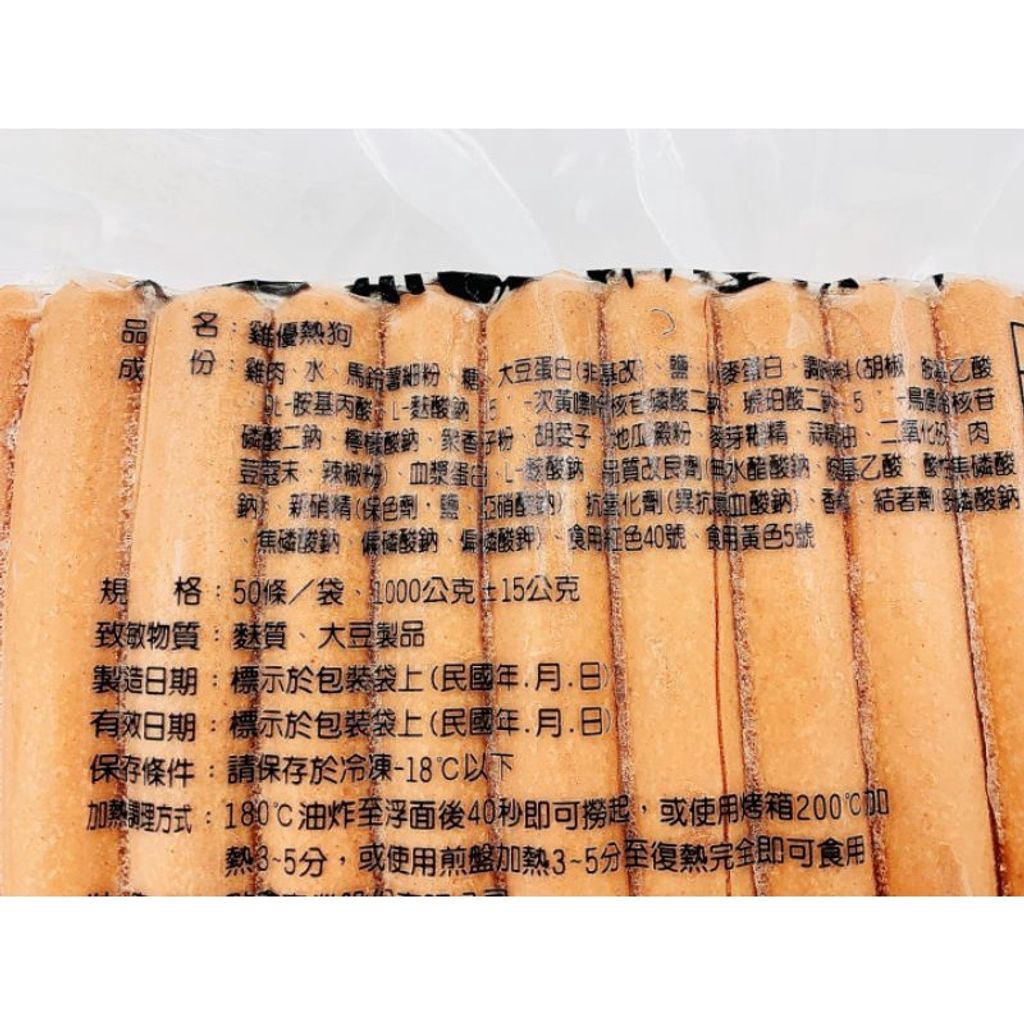 品名：雞優熱狗
成份：雞肉、水、馬鈴薯細粉、糖、大豆蛋白(非基改)、鹽、小麥蛋白、調味料(胡椒、胺基乙酸
、DL-胺基丙酸、L-麩酸鈉、5'-次黃嘌呤核苷磷酸二鈉、琥珀酸二鈉、5'-鳥嘌呤核苷
磷酸二鈉、檸檬酸鈉、眾香子粉、胡荽子、地瓜澱粉、麥芽糊精、蒜精油、二氧化矽、肉
荳蔻末、辣椒粉)、血漿蛋白、L-麩酸鈉、品質改良劑(無水醋酸鈉、胺基乙酸、酸性焦磷酸
鈉)、新硝精(保色劑，鹽、亞硝酸鈉)、抗氧化劑(異抗壞血酸鈉)、香料、結著劑(多磷酸鈉
、焦磷酸鈉、偏磷酸鈉、偏磷酸鉀)、食用紅色40號、食用黃色5號
規格：50條／袋、1000公克±15公克
致敏物質：麩質、大豆製品
製造日期：標示於包裝袋上(民國年.月.日)
有效日期：標示於包裝袋上(民國年.月.日)
保存條件：請保存於冷凍-18℃以下
加熱調理方式：180℃油炸至浮面後40秒即可撈起，或使用烤箱200℃加
熱3~5分，或使用煎盤加熱3~5分至復熱完全即可食用